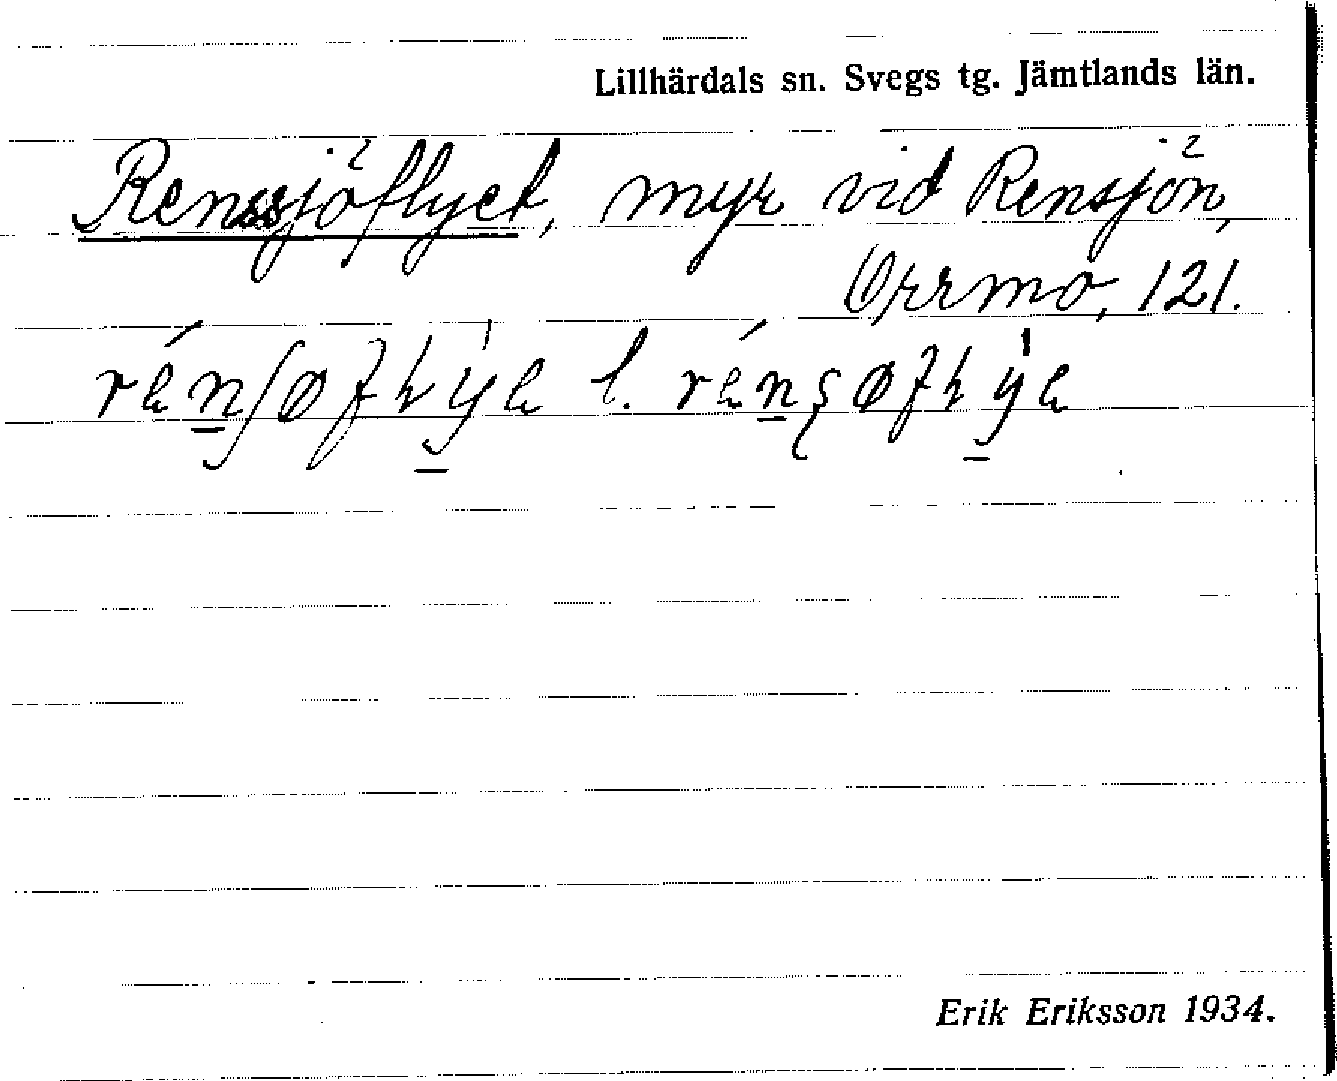 Lillhärdals sn. Svegs tg. Jämtlands län.
Rensjöflyet, myr vid Rensjön,
Orrmo, 121.
Erik Eriksson 1934.